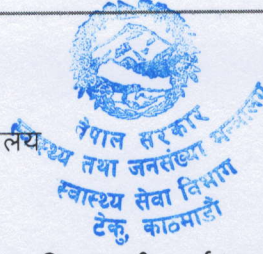 लय
नेपाल सरकार
स्वास्थ्य तथा जनसंख्या मन्त्रालय
स्वास्थ्य सेवा विभाग
टेकु, काठमाडौं